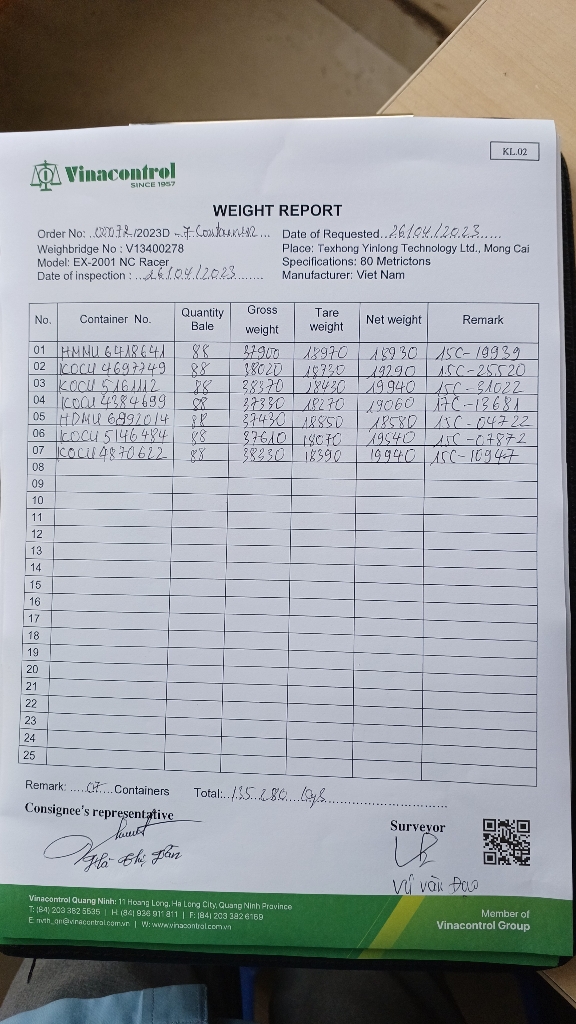 KL.02
Vinacontrol
SINCE 1957
WEIGHT REPORT
Order No: 00072/2023D - 7 Containers Date of Requested 26/04/2023
Weighbridge No : V13400278 Place: Texhong Yinlong Technology Ltd., Mong Cai
Model: EX-2001 NC Racer Specifications: 80 Metrictons
Date of inspection : 26/04/2023 Manufacturer: Viet Nam
No. Container No. Quantity Bale Gross weight Tare weight Net weight Remark
01 HMMU 6418641 88 37900 18970 18930 15C-19939
02 KOCU 4697749 88 38020 18730 19290 15C-25520
03 KOCU 516112 88 38370 18430 19940 15C-31022
04 KOCU 4384699 88 37330 18270 19060 17C-13681
05 HDMU 6892014 88 37430 18850 18580 15C-04722
06 KOCU 5146484 88 37610 18070 19540 15C-07872
07 KOCU 4870622 88 38330 18390 19940 15C-10947
08
09
10
11
12
13
14
15
16
17
18
19
20
21
22
23
24
25
Remark: 07 Containers Total: 135.280 Kgs
Consignee's representative
Surveyor
Vũ Văn Đạo
Vinacontrol Quang Ninh: 11 Hoang Long, Ha Long City, Quang Ninh Province
T: (84) 203 382 5535 | H: (84) 936 911 811 | F: (84) 203 382 6169
W: www.vinacontrol.com.vn
Member of
Vinacontrol Group